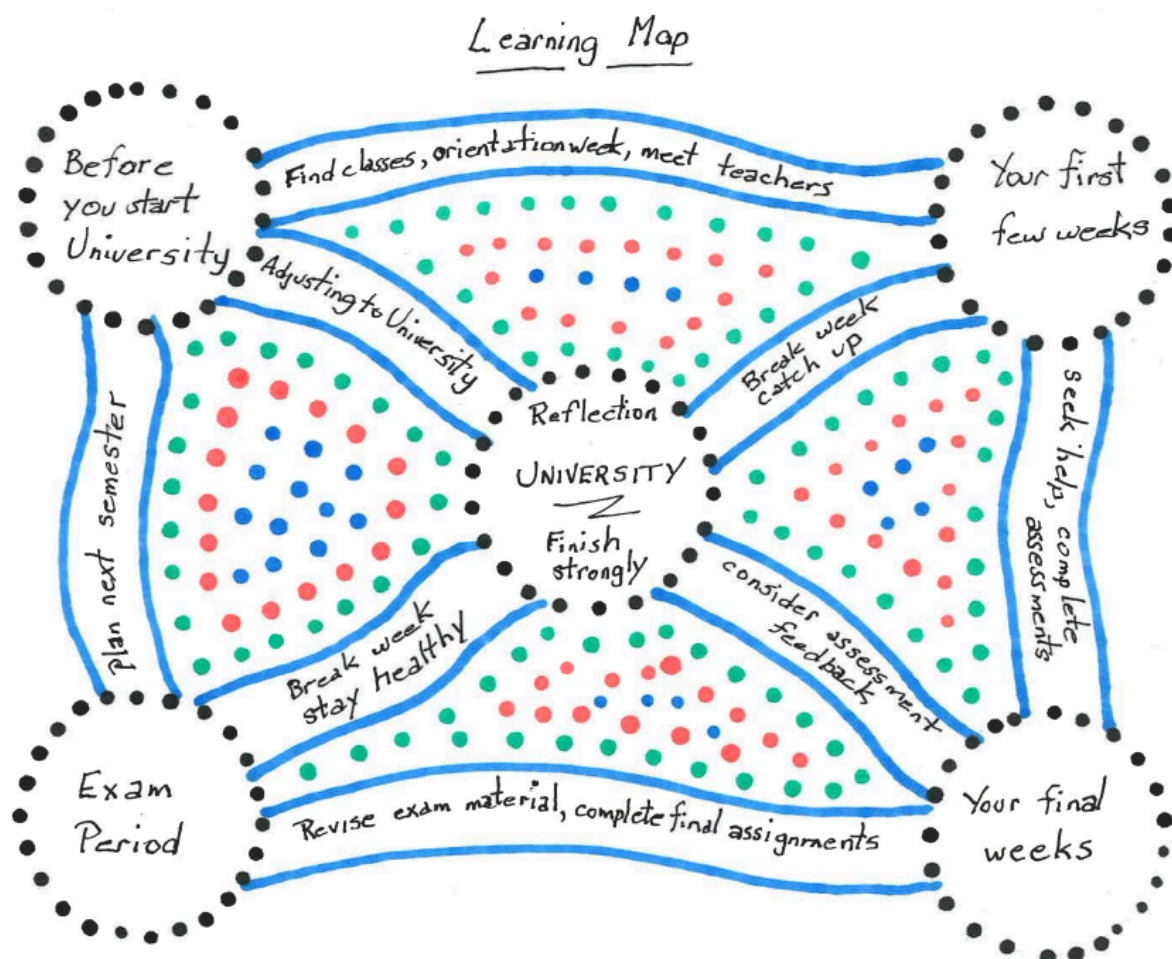 Learning Map
Before
you start
University
Find classes, orientation week, meet teachers
Your first
few weeks
Adjusting to University
Break week
catch up
Reflection
UNIVERSITY
Finish
strongly
plan next semester
seek help, complete
assessments
Break week
stay healthy
consider assessment
feedback,
Exam
Period
Revise exam material, complete final assignments
Your final
weeks